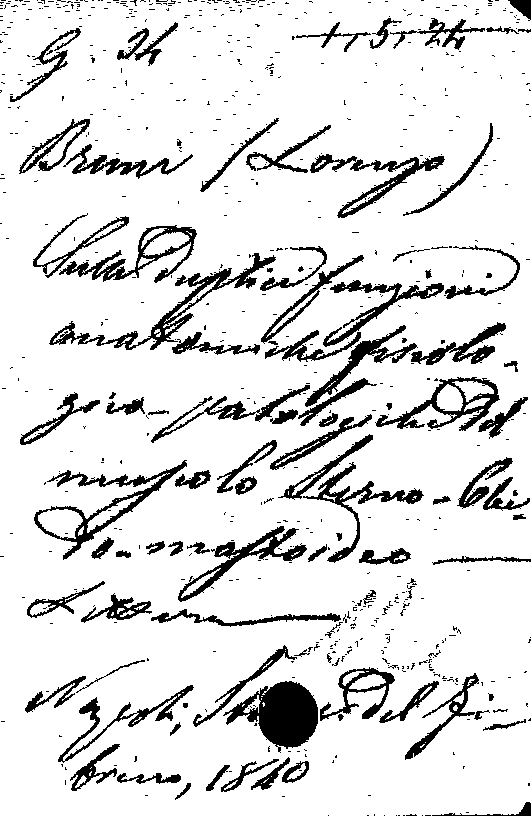 G. 24
1, 5, 24
Bruni (Lorenzo)
Sulle Duplici funzioni
anatomiche fisiolo-
gico-patologiche del
muscolo Sterno-Clei-
do-mastoideo
Lettera
Napoli, del Fi-
breno, 1840